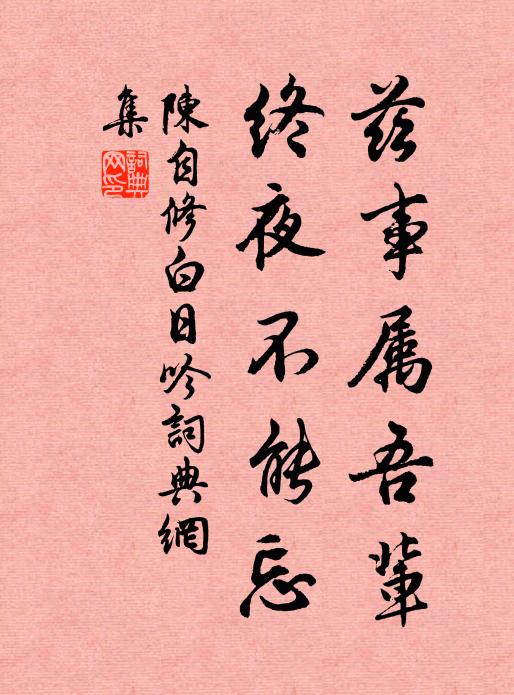 兹事属吾輩
終夜不能忘
陳自修白日吟詞典網
集
詞典網印